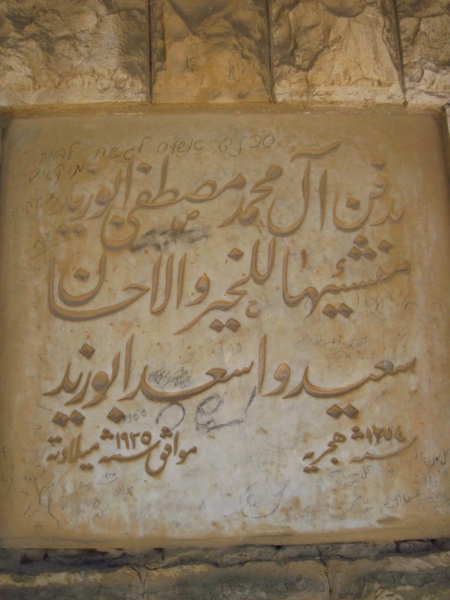 אסור לגשת
مدفن آل محمد مصطفى ابو زيد
منشئيها للخير والاحسان
سعيد واسعد ابو زيد
سنة ١٣٥٤ هجرية موافق سنة ١٩٣٥ ميلادية